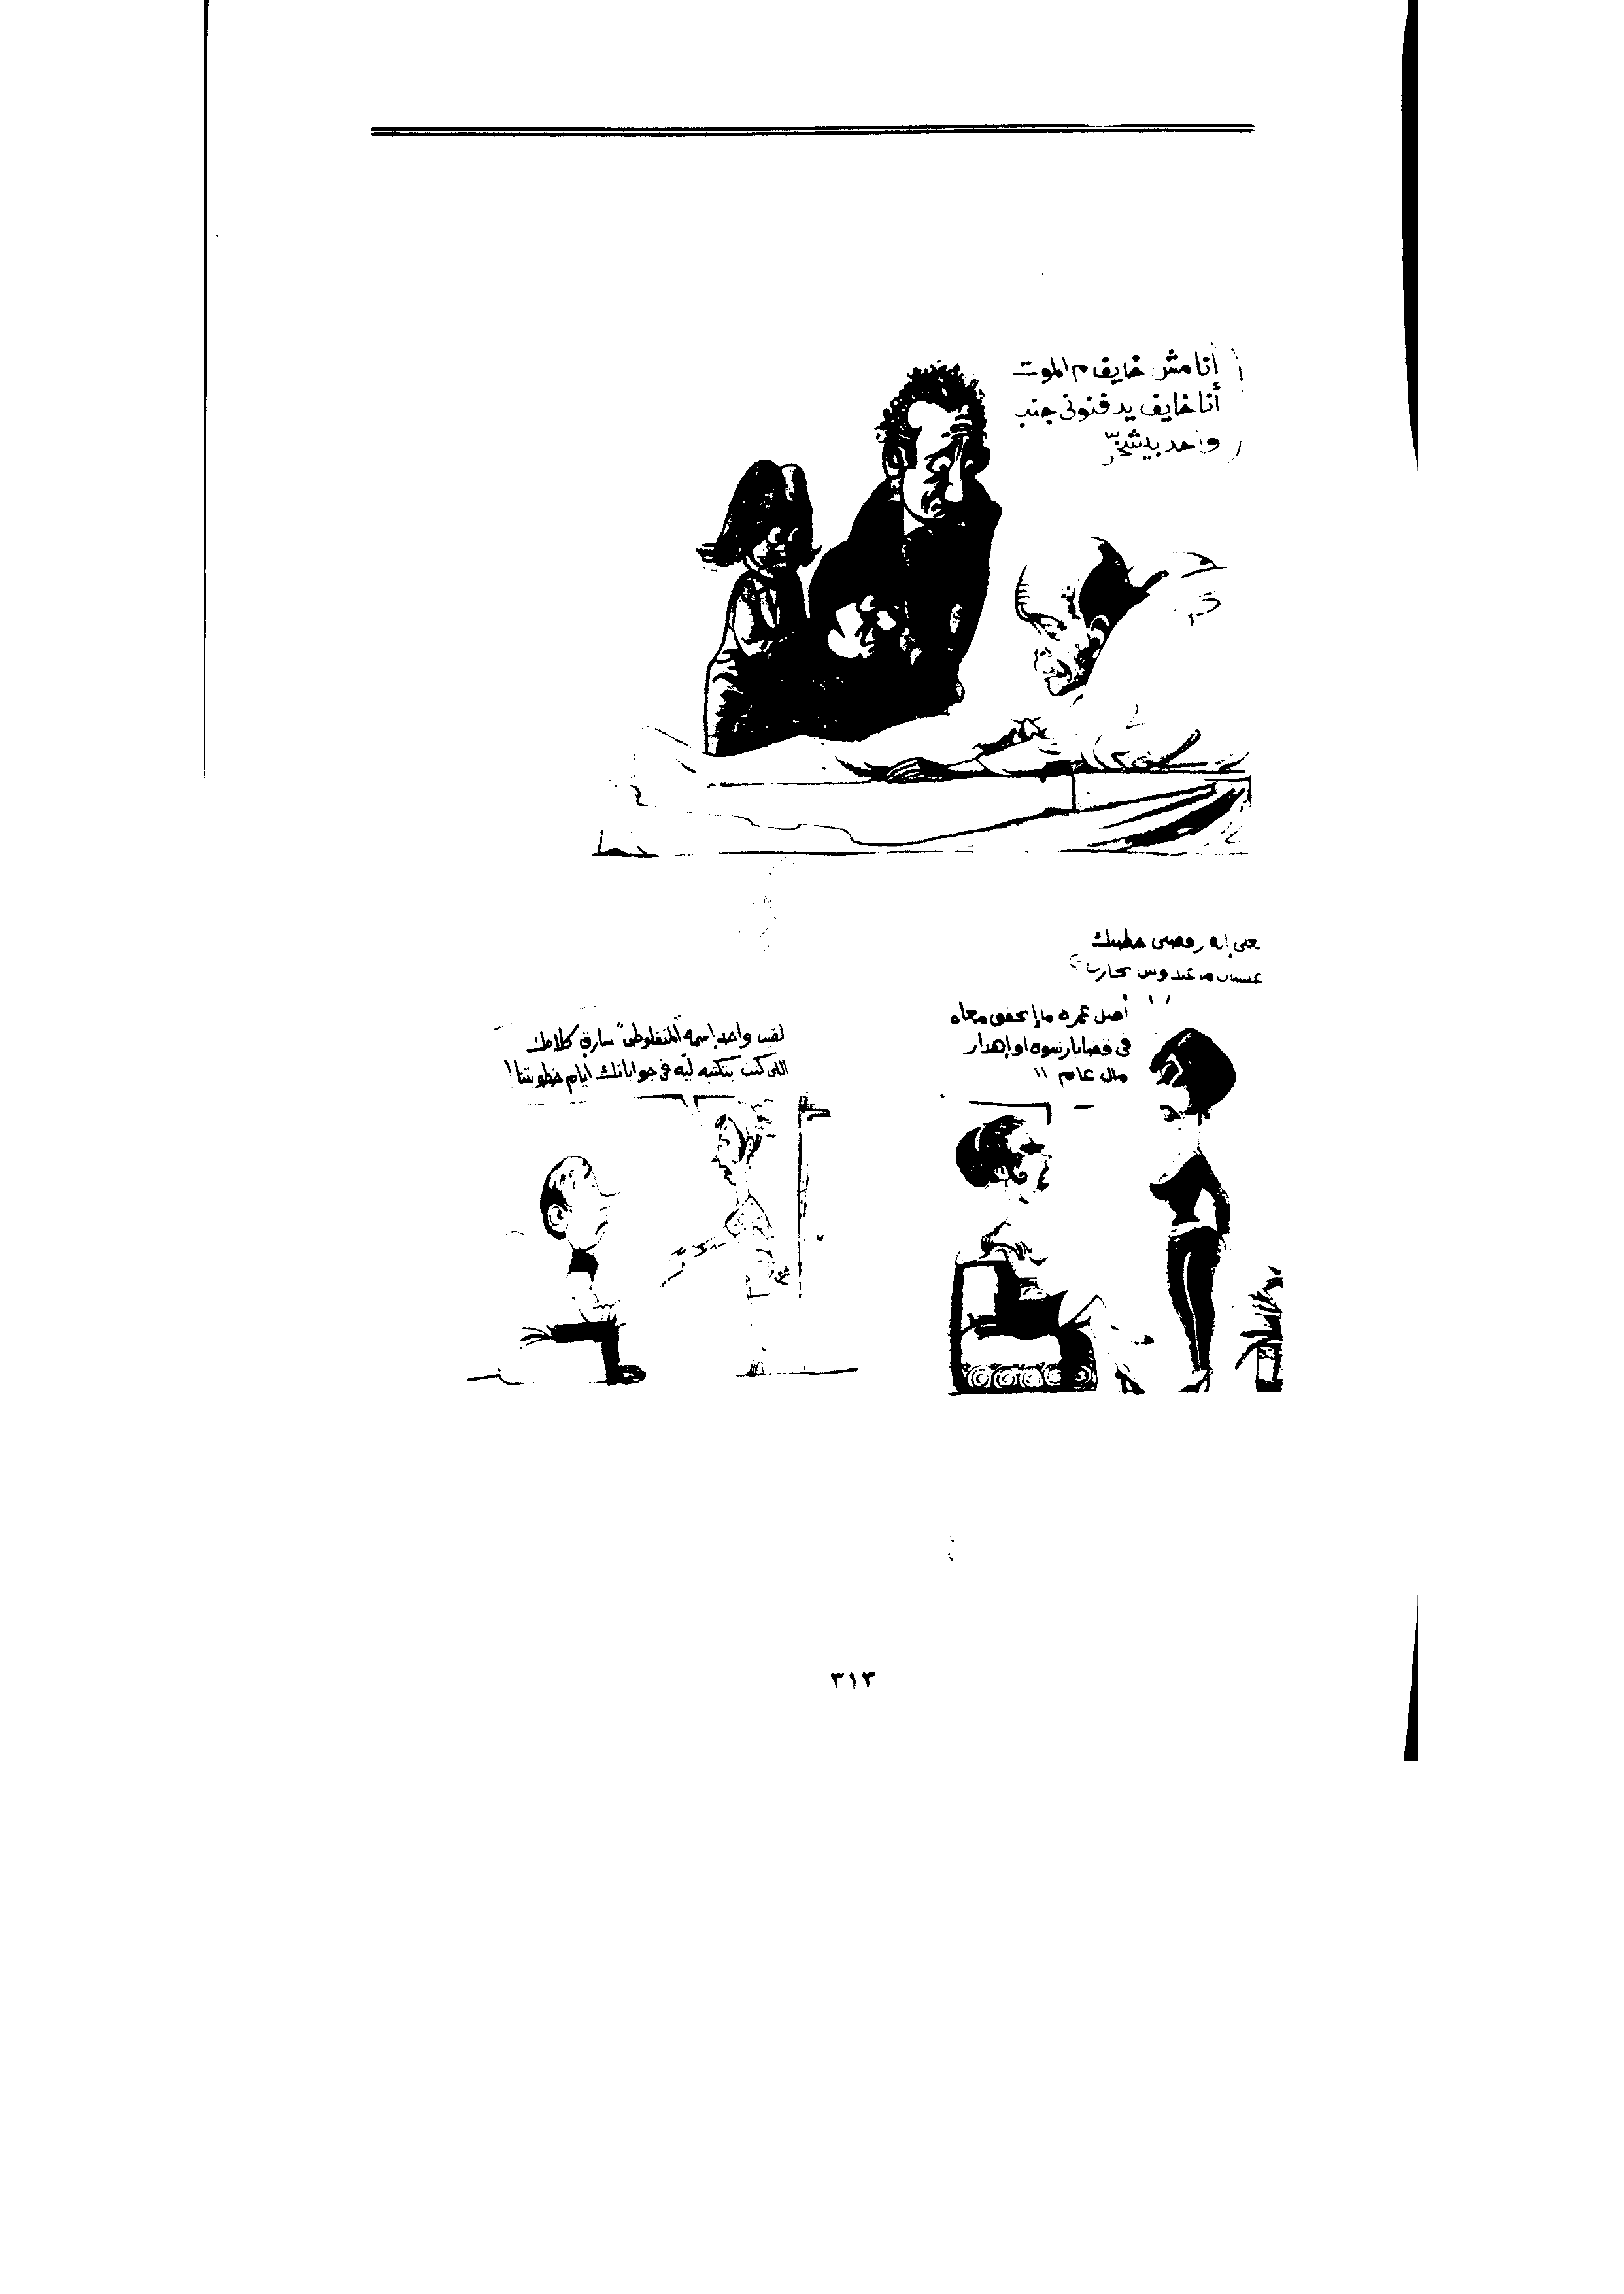 أنا مش خايف م الموت
أنا خايف يدفنونى جنب
واحد بيشخّر
يعنى إيه رفضتى خطيبك
عشان ما عندوش تجارب؟
أصل عمره ما إتحقق معاه
فى قضايا رشوه او إهدار
مال عام !!
لقيت واحد إسمه "المنفلوطى" سارق كلامك
اللى كنت بتكتبه ليّه فى جواباتك أيام خطوبتنا!
٣١٣